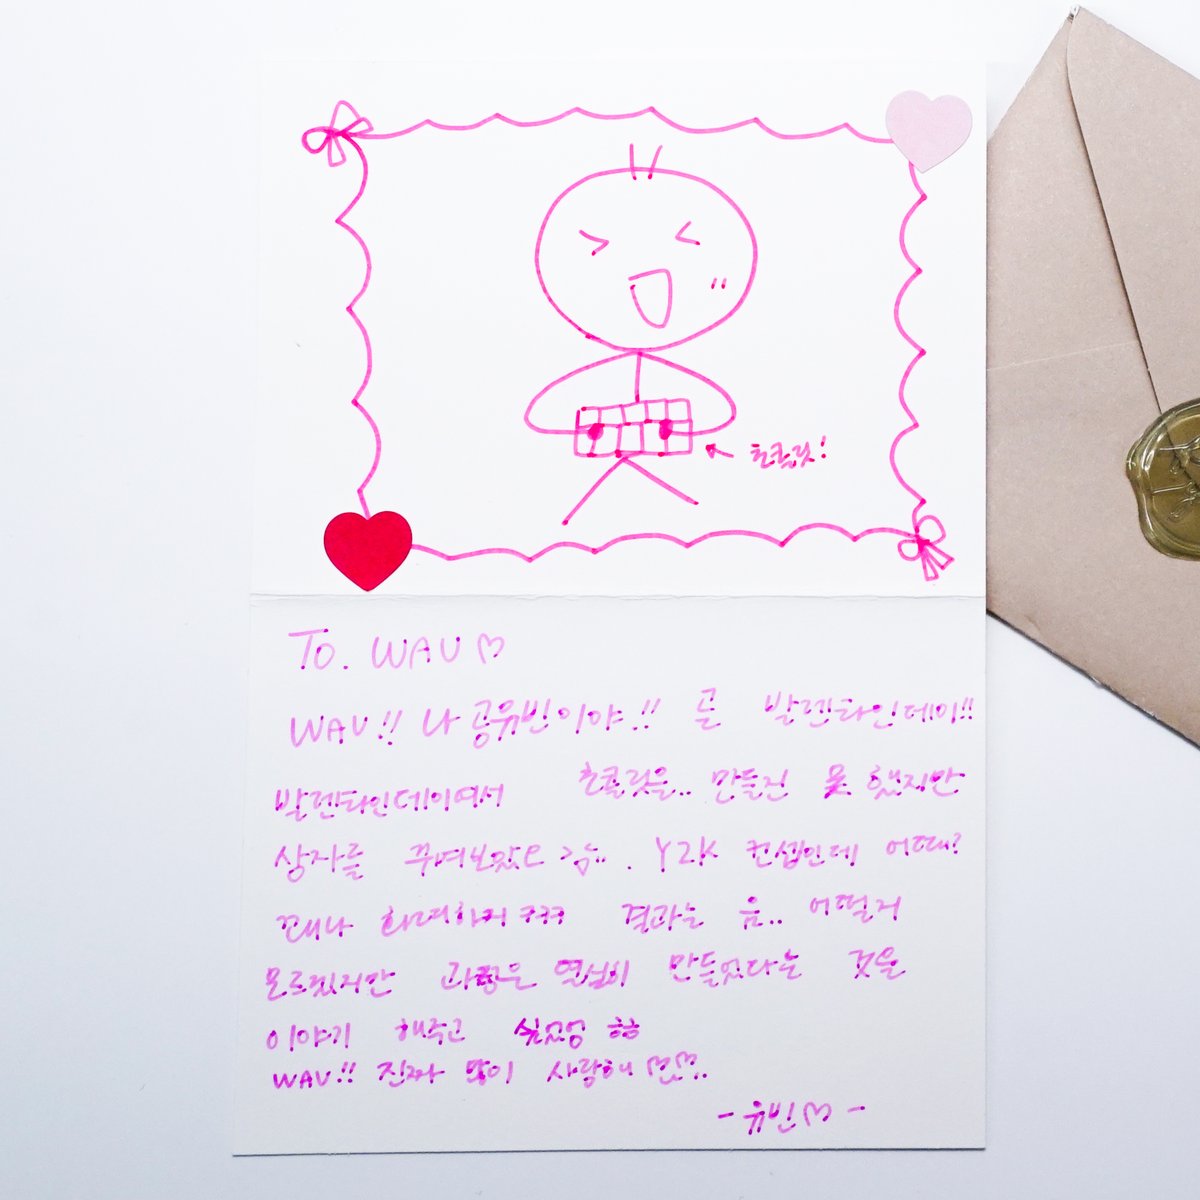 초콜릿!
To. WAV♡
WAV!! 나 공유빈이야!! 곧 발렌타인데이!!
발렌타인데이여서 초콜릿을.. 만들진 못 했지만
상자를 꾸며보았으 Y2K 컨셉인데 어때?
꽤나 화려하지 ㅋㅋㅋ 결과는 음.. 어떨지
모르겠지만 과정은 열심히 만들었다는 것을
이야기 해주고 싶었엉 ㅎㅎ
WAV!! 진짜 많이 사랑해 ♡♡..
- 유빈♡ -